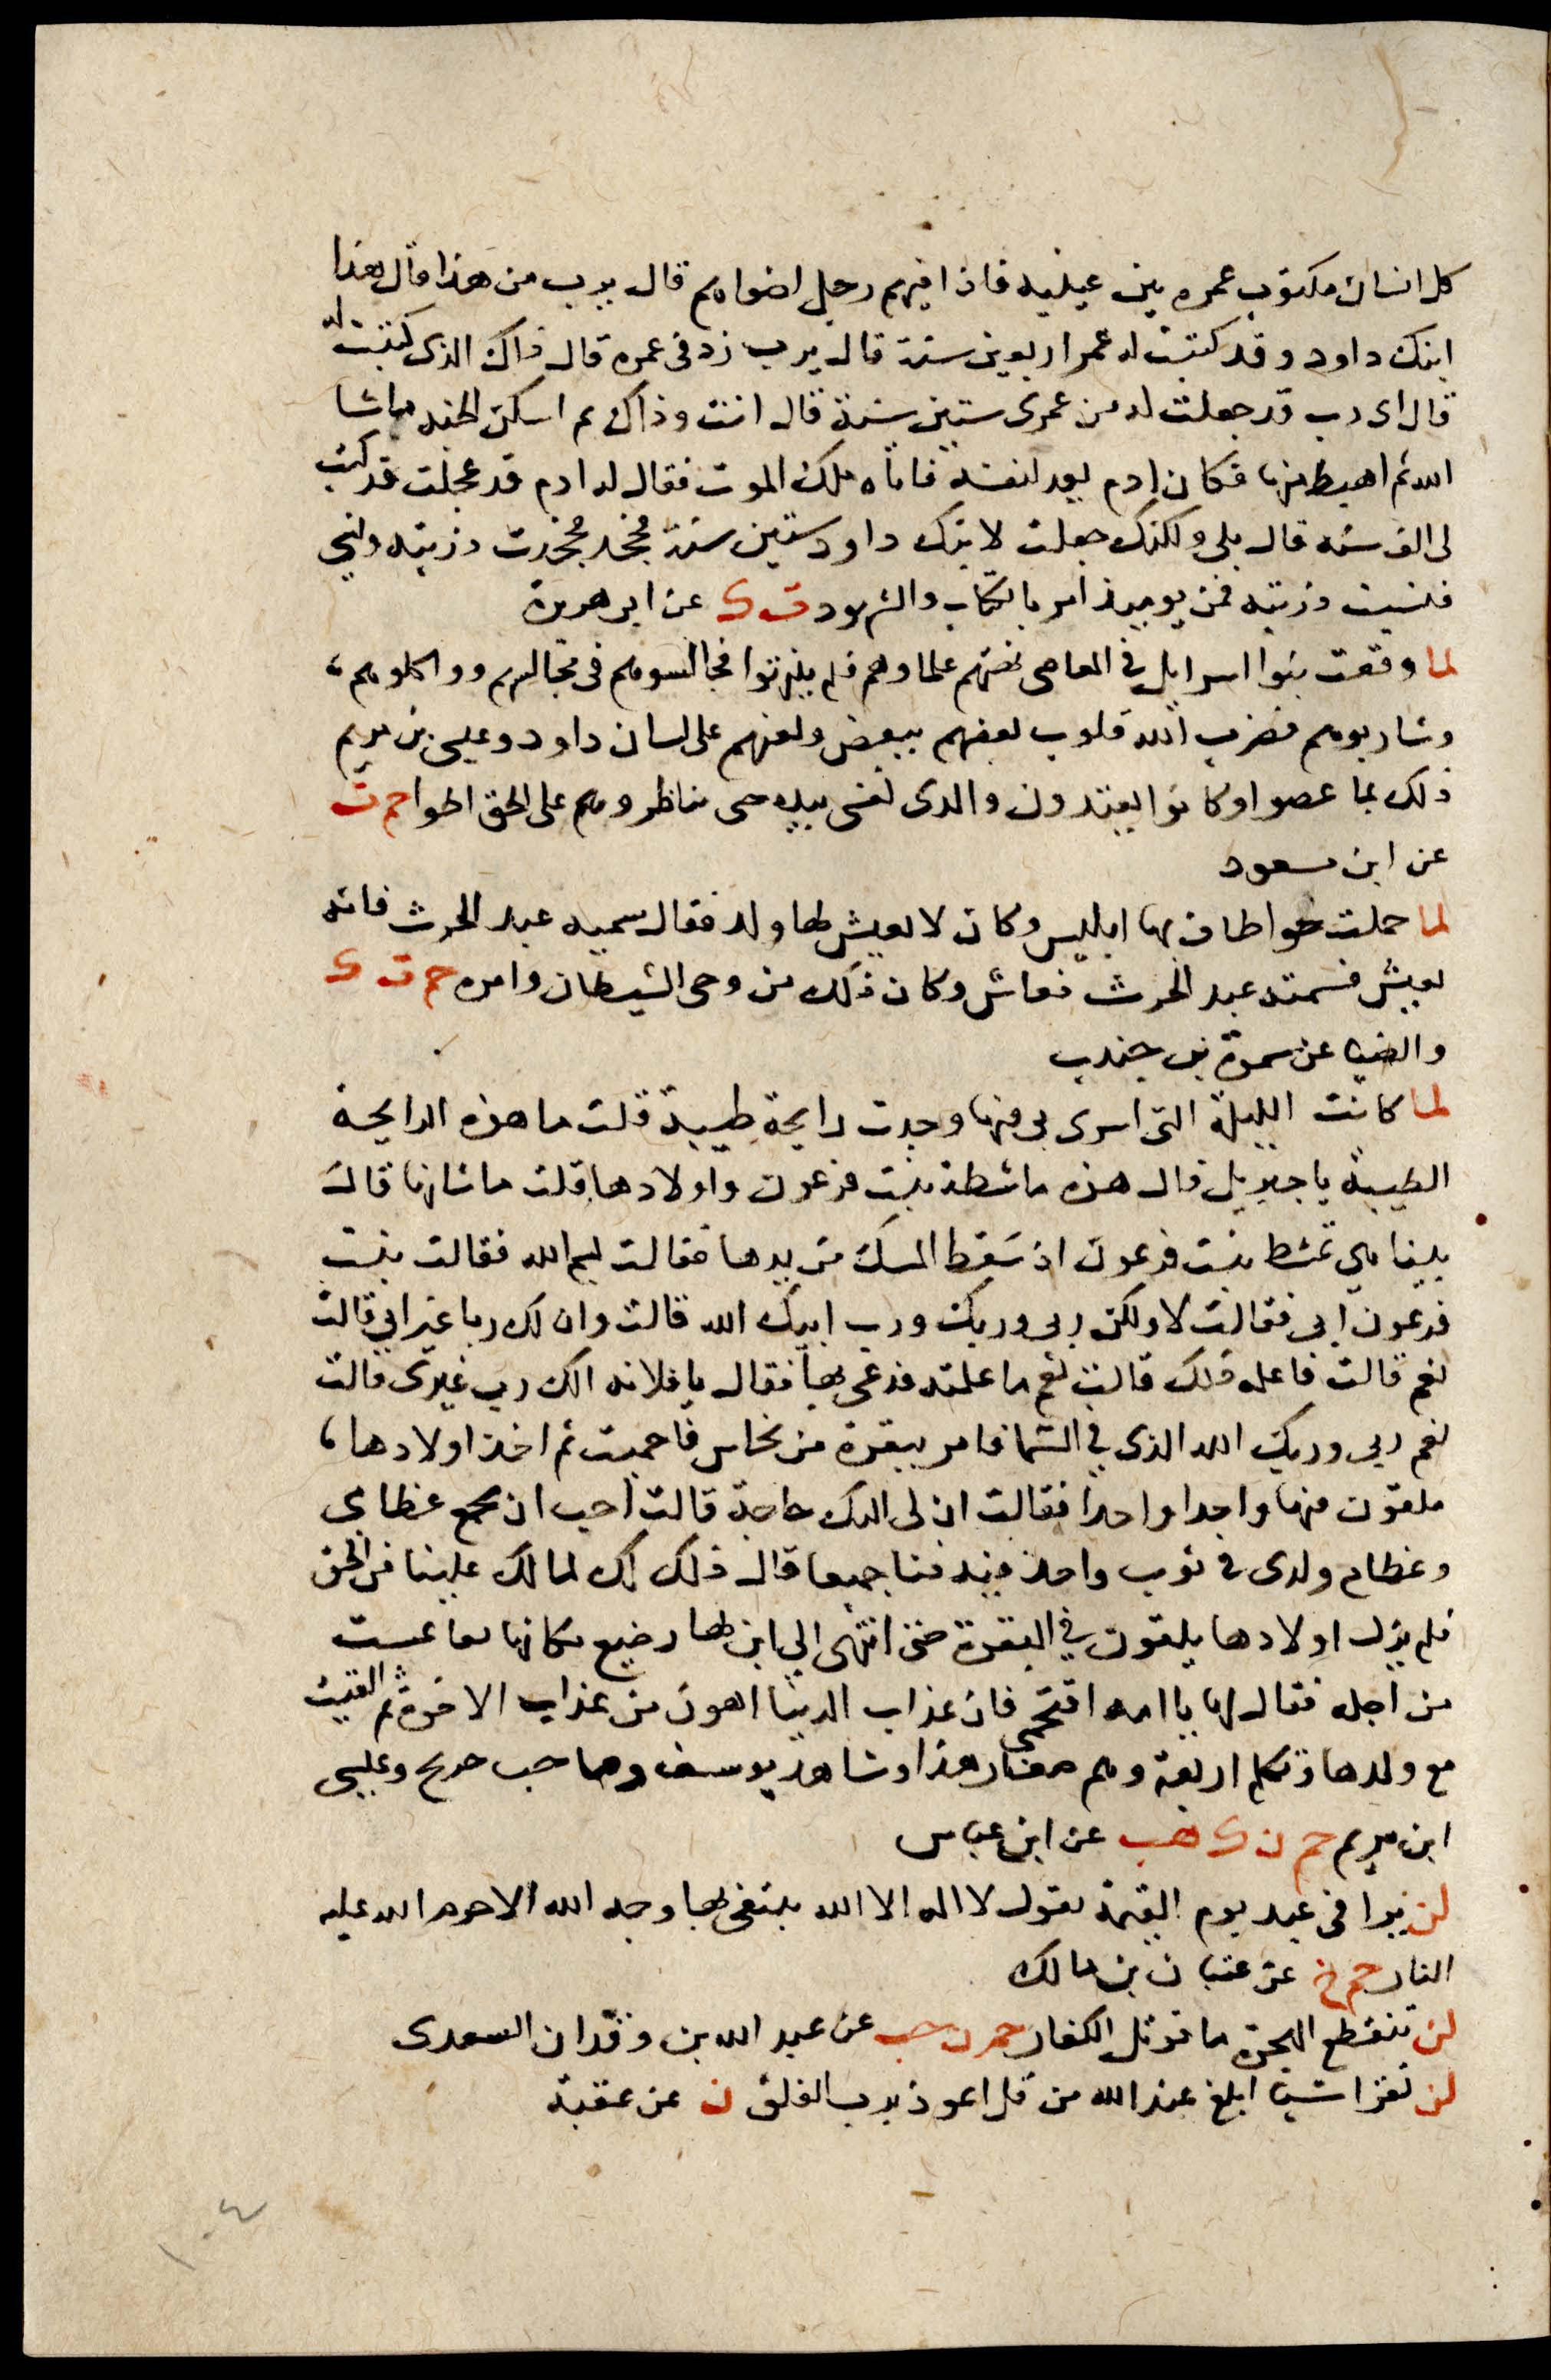 كل انسان مكتوب عمره بين عينيه فاذا فيهم رجل اضواهم قال يرب من هذا قال هذا
ابنك داود وقد كتبت له عمر اربعين سنة قال يرب زد في عمره قال ذاك الذي كتبت له
قال اى رب قد جعلت له من عمرى ستين سنة قال انت وذاك ثم اسكن الجنه ماشا
الله ثم اهبط منها فكان ادم يعد لنفسه فاتاه ملك الموت فقال له ادم قد عجلت قد كتب
لى الف سنه قال بلى ولكنك جعلت لابنك داود ستين سنة فجحد فجحدت ذريته ونسي
فنسيت ذريته فمن يوميذ امر بالكتاب والشهود ت ك عن ابى هريرة
لما وقعت بنوا اسرايل في المعاصى نهتهم علماوهم فلم ينتهوا فجالسوهم في مجالسهم وواكلوهم
وشاربوهم فضرب الله قلوب بعضهم ببعض ولعنهم على لسان داود وعيسى بن مريم
ذلك بما عصوا وكانوا يعتدون والذى نفسى بيده حتى تاطروهم على الحق اطرا حم ت
عن ابن مسعود
لما حملت حوا طاف بها ابليس وكان لا يعيش لها ولد فقال سميه عبد الحرث فانه
يعيش فسمته عبد الحرث فعاش وكان ذلك من وحى الشيطان وامره حم ت ك
والضيا عن سمرة بن جندب
لما كانت الليلة التى اسرى بى فيها وجدت رايحة طيبة قلت ما هذه الرايحة
الطيبة يا جبريل قال هذه ماشطة بنت فرعون واولادها قلت ما شانها قال
بينا هي تمشط بنت فرعون اذ سقط المسك من يدها فقالت بسم الله فقالت بنت
فرعون ابى فقالت لا ولكن ربى وربك ورب ابيك الله قالت وان لك ربا غير ابى قالت
نعم قالت فاعلمه ذلك قالت نعم ما علمته فدعى بها فقال يا فلانه الك رب غيرى قالت
نعم ربى وربك الله الذى في السما فامر ببقرة من نحاس فاحميت ثم اخذ اولادها
يلقون فيها واحدا واحدا فقالت ان لى اليك حاجة قالت احب ان تجمع عظامى
وعظام ولدى في ثوب واحد فتدفنا جميعا قال ذلك لك لما لك علينا من الحق
فلم يزل اولادها يلقون في البقرة حتى انتهى الى ابن لها رضيع كانها تقاعست
من اجله فقال لها يا امه اقتحمى فان عذاب الدنيا اهون من عذاب الاخرة ثم القيت
مع ولدها وتكلم اربعة وهم صغار هذا وشاهد يوسف وصاحب جريج وعيسى
ابن مريم حم ن ك هب عن ابن عباس
لن يوافى عبد يوم القيمة يقول لا اله الا الله يبتغى بها وجه الله الا حرم الله عليه
النار حم خ عن عتبان بن مالك
لن تنقطع الهجرة ما قوتل الكفار حم ن حب عن عبد الله بن وقدان السعدى
لن تقرا شيا ابلغ عند الله من قل اعوذ برب الفلق ن عن عقبة
١٠٤